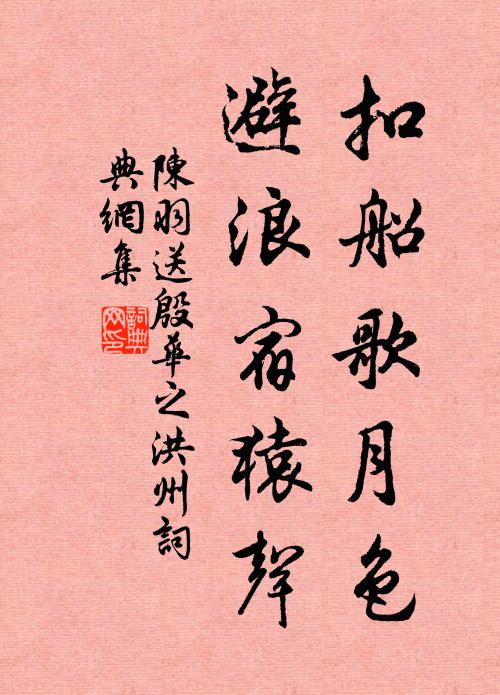 扣船歌月色
避浪宿猿聲
陳羽送殷華之洪州詞
典網集
詞典
网印